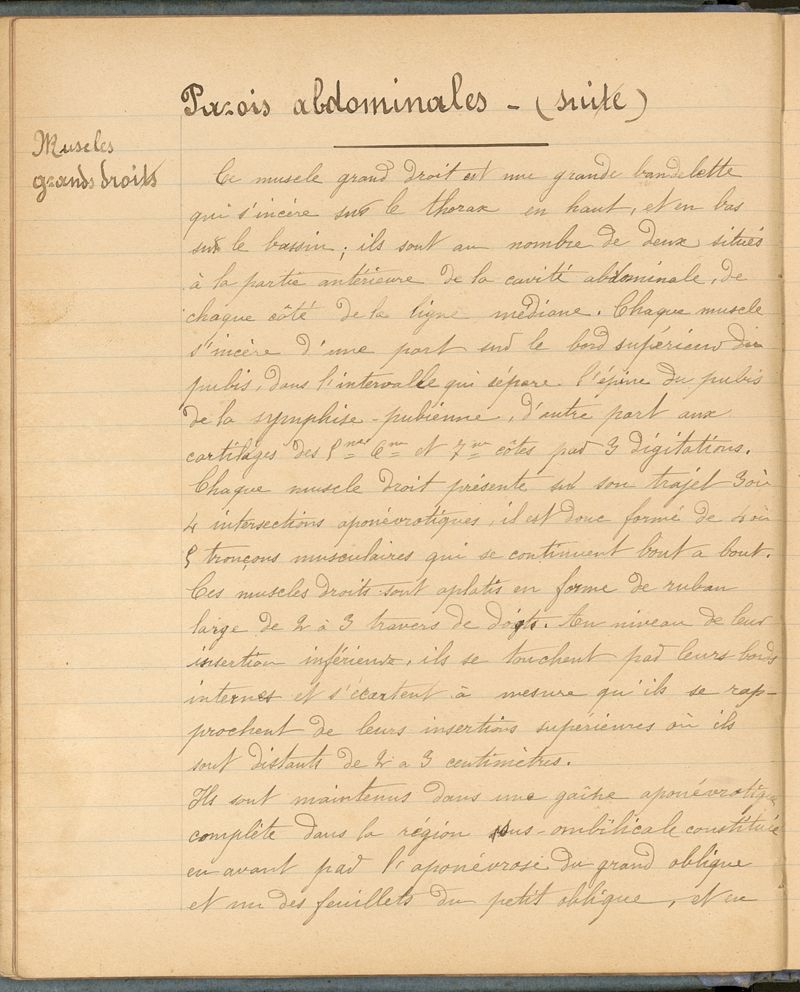 Parois abdominales - (suite)
Muscles
grands droits
Ce muscle grand droit est une grande bandelette
qui s'incère sur le thorax en haut, et en bas
sur le bassin ; ils sont au nombre de deux situés
à la partie antérieure de la cavité abdominale, de
chaque côté de la ligne médiane. Chaque muscle
s'incère d'une part sur le bord supérieur du
pubis, dans l'intervalle qui sépare l'épine du pubis
de la symphise-pubienne, d'autre part aux
cartilages des 5me 6me et 7me côtes par 3 digitations.
Chaque muscle droit présente sur son trajet 3 où
4 intersections aponévrotiques, il est donc formé de 4 où
5 tronçons musculaires qui se continuent bout a bout.
Ces muscles droits sont aplatis en forme de ruban
large de 2 à 3 travers de doigts. Au niveau de leur
insertion inférieure, ils se touchent par leurs bords
internes et s'écartent à mesure qu'ils se rap-
prochent de leurs insertions supérieures où ils
sont distants de 2 a 3 centimètres.
Ils sont maintenus dans une gaîne aponévrotique
complète dans la région sus-ombilicale constituée
en avant par l'aponévrose du grand oblique
et un des feuillets du petit oblique, et en